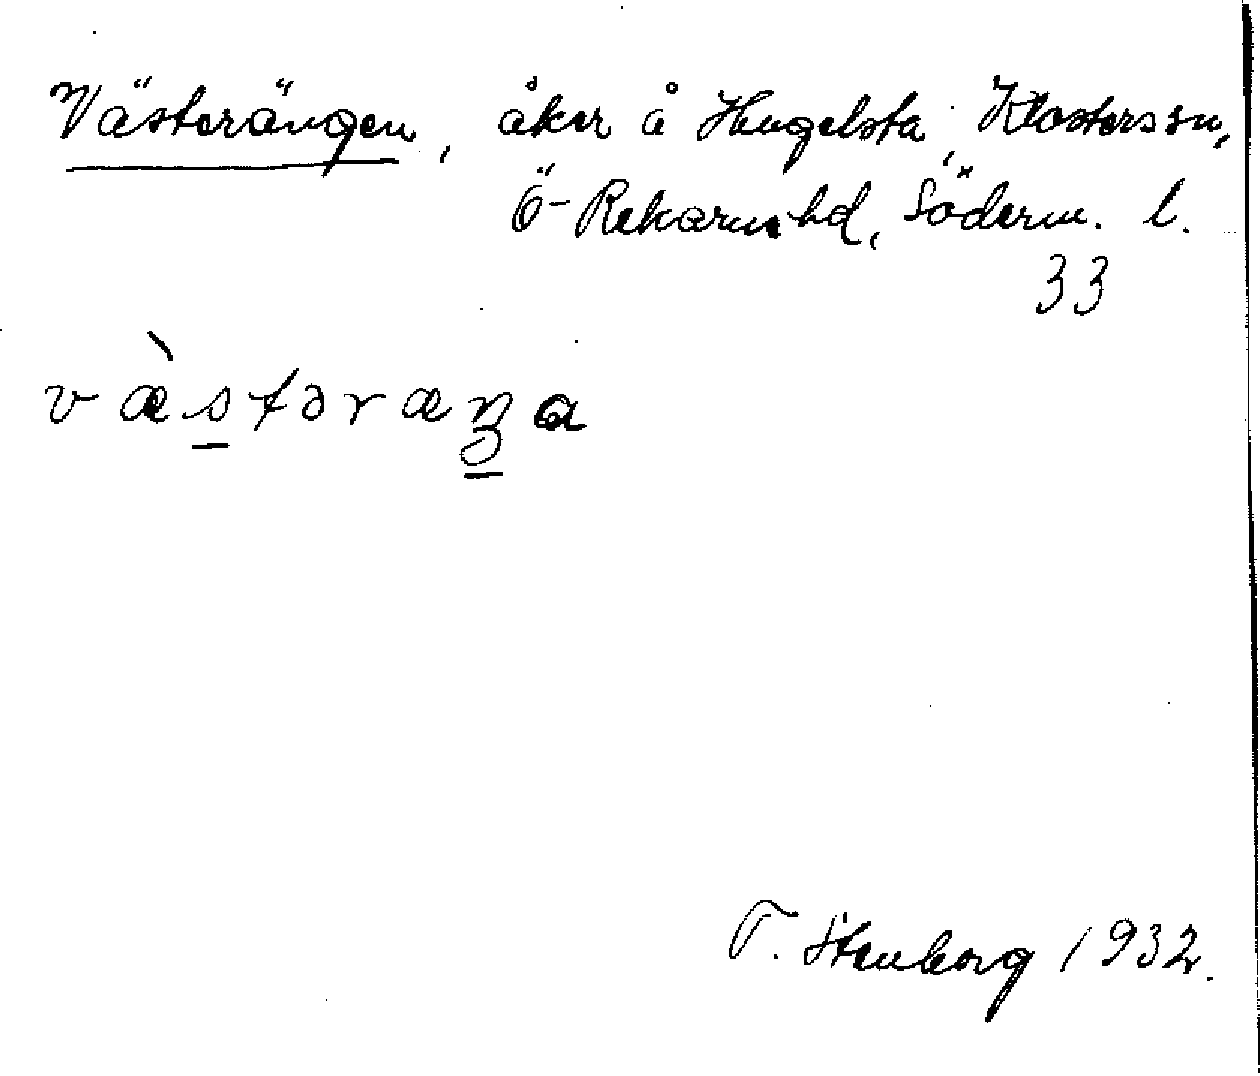 Västerängen, åker å Hugelsta, Klosters sn,
Ö-Rekarne hd, Söderm. l.
33
væ̀stəræŋa
T. Stenborg 1932.